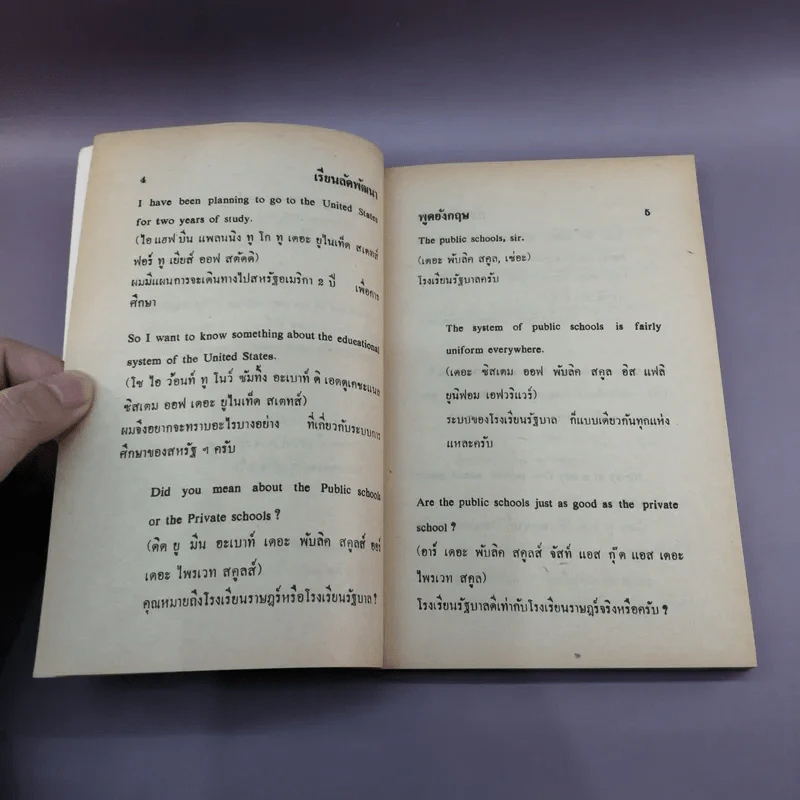 4
เรียนลัดพัฒนา
I have been planning to go to the United States
for two years of study.
(ไอ แฮฟ บีน แพลนนิง ทู โก ทู เดอะ ยูไนเท็ด สเตทส์
ฟอร์ ทู เยียส์ ออฟ สตัดดิ)
ผมมีแผนการจะเดินทางไปสหรัฐอเมริกา 2 ปี เพื่อการ
ศึกษา
So I want to know something about the educational
system of the United States.
(โซ ไอ ว้อนท์ ทู โนว์ ซัมทิ้ง อะเบาท์ ดิ เอดดูเคชะแนล
ซิสเตม ออฟ เดอะ ยูไนเท็ด สเตทส์)
ผมจึงอยากจะทราบอะไรบางอย่าง ที่เกี่ยวกับระบบการ
ศึกษาของสหรัฐ ฯ ครับ
Did you mean about the Public schools
or the Private schools ?
(ดิด ยู มีน อะเบาท์ เดอะ พับลิค สคูลส์ ออร์
เดอะ ไพรเวท สคูลส์)
คุณหมายถึงโรงเรียนราษฎร์หรือโรงเรียนรัฐบาล ?
พูดอังกฤษ
5
The public schools, sir.
(เดอะ พับลิค สคูล, เซ่อะ)
โรงเรียนรัฐบาลครับ
The system of public schools is fairly
uniform everywhere.
(เดอะ ซิสเตม ออฟ พับลิค สคูล อิส แฟลิ
ยูนิฟอม เอฟวริแวร์)
ระบบของโรงเรียนรัฐบาล ก็แบบเดียวกันทุกแห่ง
แหละครับ
Are the public schools just as good as the private
school ?
(อาร์ เดอะ พับลิค สคูลส์ จัสท์ แอส กุ๊ด แอส เดอะ
ไพรเวท สคูล)
โรงเรียนรัฐบาลดีเท่ากับโรงเรียนราษฎร์จริงหรือครับ ?